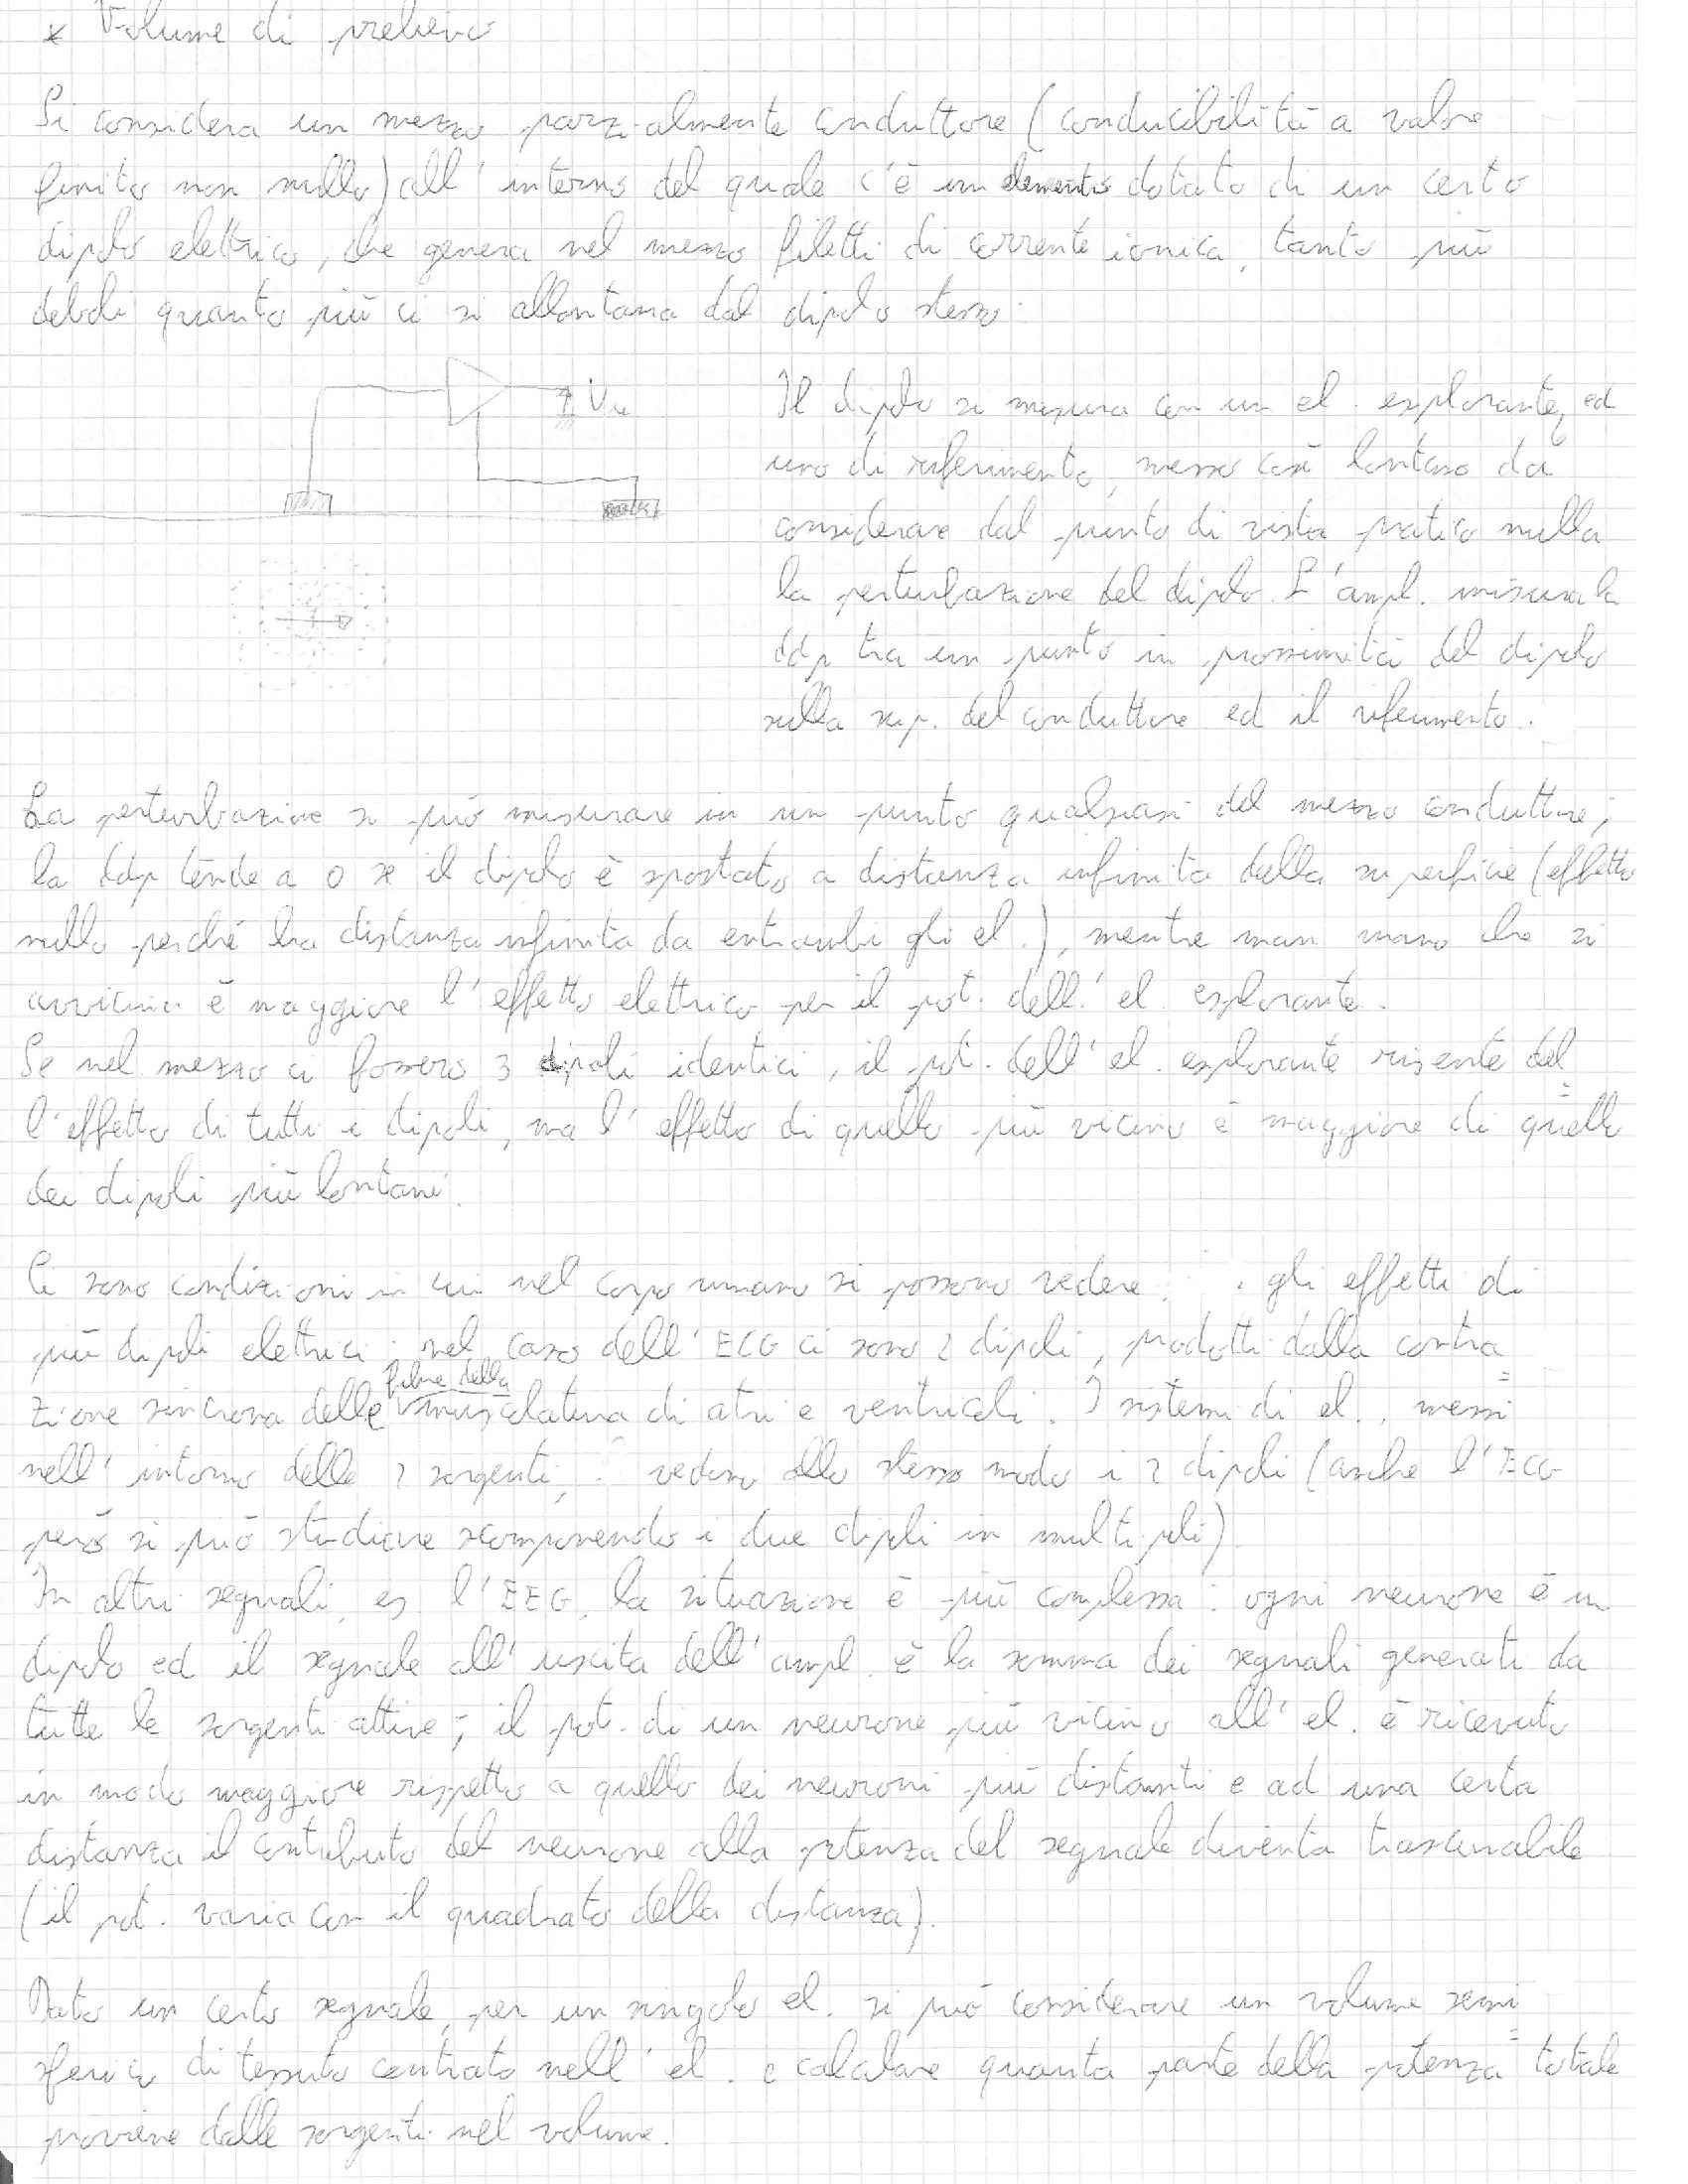 * Volume di prelievo
Si considera un mezzo parzialmente conduttore (conducibilità a valore
finito non nullo) all'interno del quale c'è un elemento dotato di un certo
dipolo elettrico, che genera nel mezzo filetti di corrente ionica, tanto più
deboli quanto più ci si allontana dal dipolo stesso.
Vu
Il dipolo si misura con un el. esplorante, ed
uno di riferimento, messo così lontano da
considerare dal punto di vista pratico nulla
la perturbazione del dipolo. L'ampl. misura la
ddp tra un punto in prossimità del dipolo
sulla sup. del conduttore ed il riferimento.
La perturbazione si può misurare in un punto qualsiasi del mezzo conduttore;
la ddp tende a 0 se il dipolo è spostato a distanza infinita dalla superficie (effetto
nullo perché ha distanza infinita da entrambi gli el.), mentre man mano che si
avvicina è maggiore l'effetto elettrico per il pot. dell'el. esplorante.
Se nel mezzo ci fossero 3 dipoli identici, il pot. dell'el. esplorante risente del
l'effetto di tutti i dipoli, ma l'effetto di quello più vicino è maggiore di quello
dei dipoli più lontani.
Ci sono condizioni in cui nel corpo umano si possono vedere gli effetti di
più dipoli elettrici: nel caso dell'ECG ci sono 2 dipoli, prodotti dalla contra
zione sincrona delle fibre della muscolatura di atri e ventricoli. I sistemi di el., messi
nell'intorno delle 2 sorgenti, vedono allo stesso modo i 2 dipoli (anche l'ECG
però si può studiare scomponendo i due dipoli in multipoli).
In altri segnali, es. l'EEG, la situazione è più complessa: ogni neurone è un
dipolo ed il segnale all'uscita dell'ampl. è la somma dei segnali generati da
tutte le sorgenti attive; il pot. di un neurone più vicino all'el. è ricevuto
in modo maggiore rispetto a quello dei neuroni più distanti e ad una certa
distanza il contributo del neurone alla potenza del segnale diventa trascurabile
(il pot. varia con il quadrato della distanza).
Dato un certo segnale, per un singolo el. si può considerare un volume semi
sferico di tessuto centrato nell'el. e calcolare quanta parte della potenza totale
proviene dalle sorgenti nel volume.